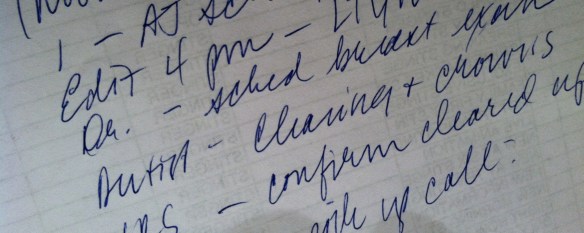 1 - AJ
Edit 4 pm -
Dr. - sched breast exam
Dentist - cleaning + crowns
- confirm cleared up
up call: